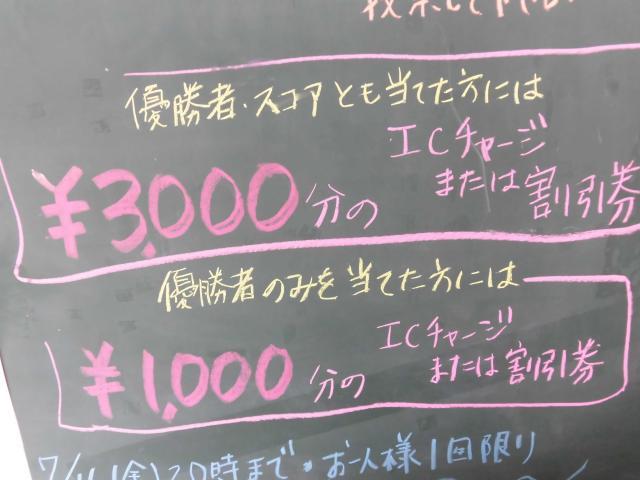 投票して下さい
優勝者・スコアとも当てた方には
¥3,000分の
ICチャージ
または割引券
優勝者のみを当てた方には
¥1,000分の
ICチャージ
または割引券
20時まで・お一人様1回限り